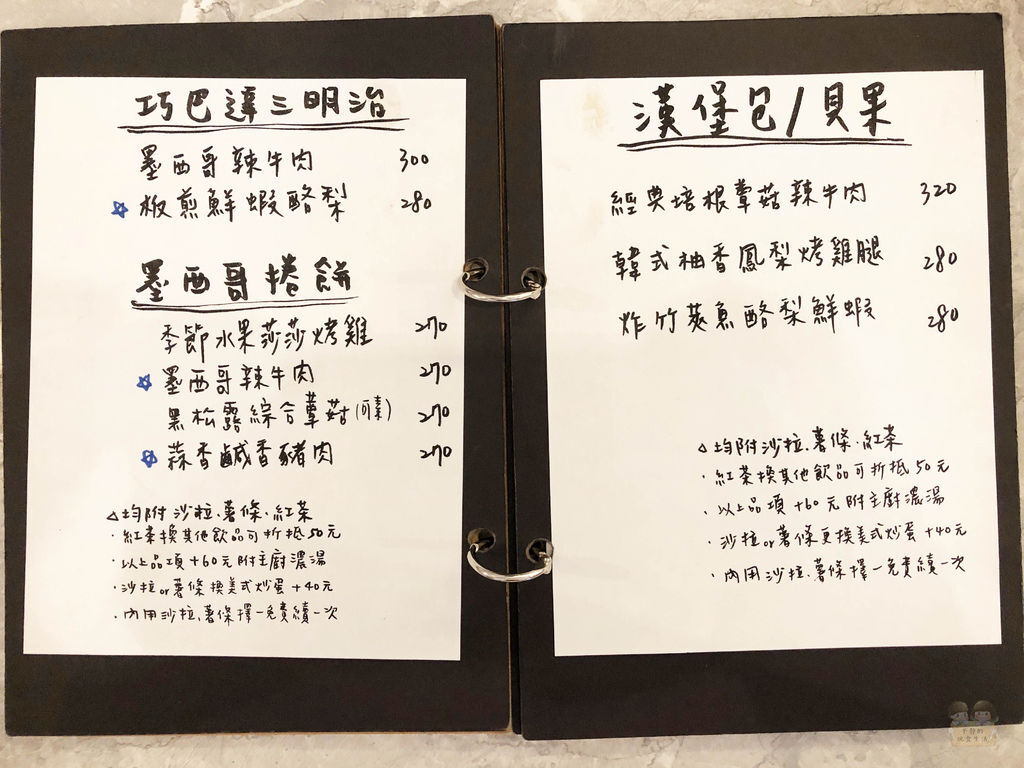 巧巴達三明治
墨西哥辣牛肉 300
☆ 板煎鮮蝦酪梨 280
墨西哥捲餅
季節水果莎莎烤雞 270
☆ 墨西哥辣牛肉 270
黑松露綜合蕈菇(可素) 270
☆ 蒜香鹹香豬肉 270
△均附沙拉、薯條、紅茶
·紅茶換其他飲品可折抵50元
·以上品項+60元附主廚濃湯
·沙拉or薯條換美式炒蛋+40元
·內用沙拉、薯條擇一免費續一次
漢堡包/貝果
經典培根蕈菇辣牛肉 320
韓式柚香鳳梨烤雞腿 280
炸竹莢魚酪梨鮮蝦 280
△均附沙拉、薯條、紅茶
·紅茶換其他飲品可折抵50元
·以上品項+60元附主廚濃湯
·沙拉or薯條更換美式炒蛋+40元
·內用沙拉、薯條擇一免費續一次